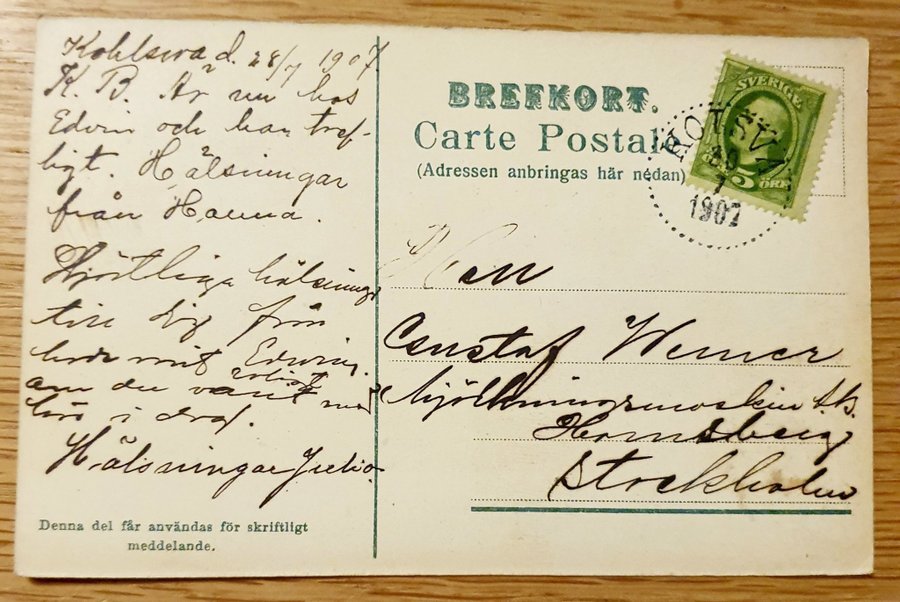 Kohlswa d. 28/7 1907.
K. B. Är nu hos
Edvin och har tref-
ligt. Hälsningar
från Hanna.
Hjärtliga hälsningar
till dig från
Edwin.
om du varit med
i dag.
Hälsningar
BREFKORT.
Carte Postale
(Adressen anbringas här nedan)
SVERIGE
5 ÖRE
KOLSVA
30
7
1907
Herr
Gustaf Werner
Mjölkningsmaskin A.B.
Hornsberg
Stockholm
Denna del får användas för skriftligt
meddelande.